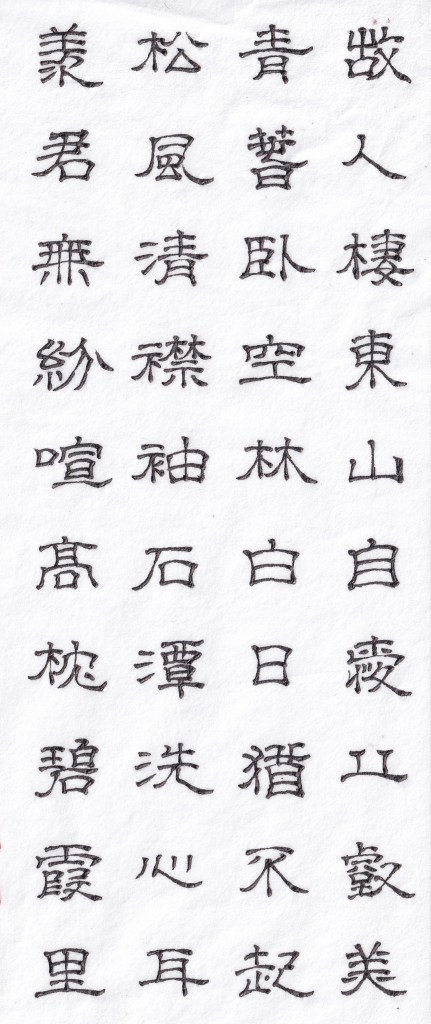 故人棲東山自愛丘壑美
青春卧空林白日猶不起
松風清襟袖石潭洗心耳
羨君無紛喧髙枕碧霞里